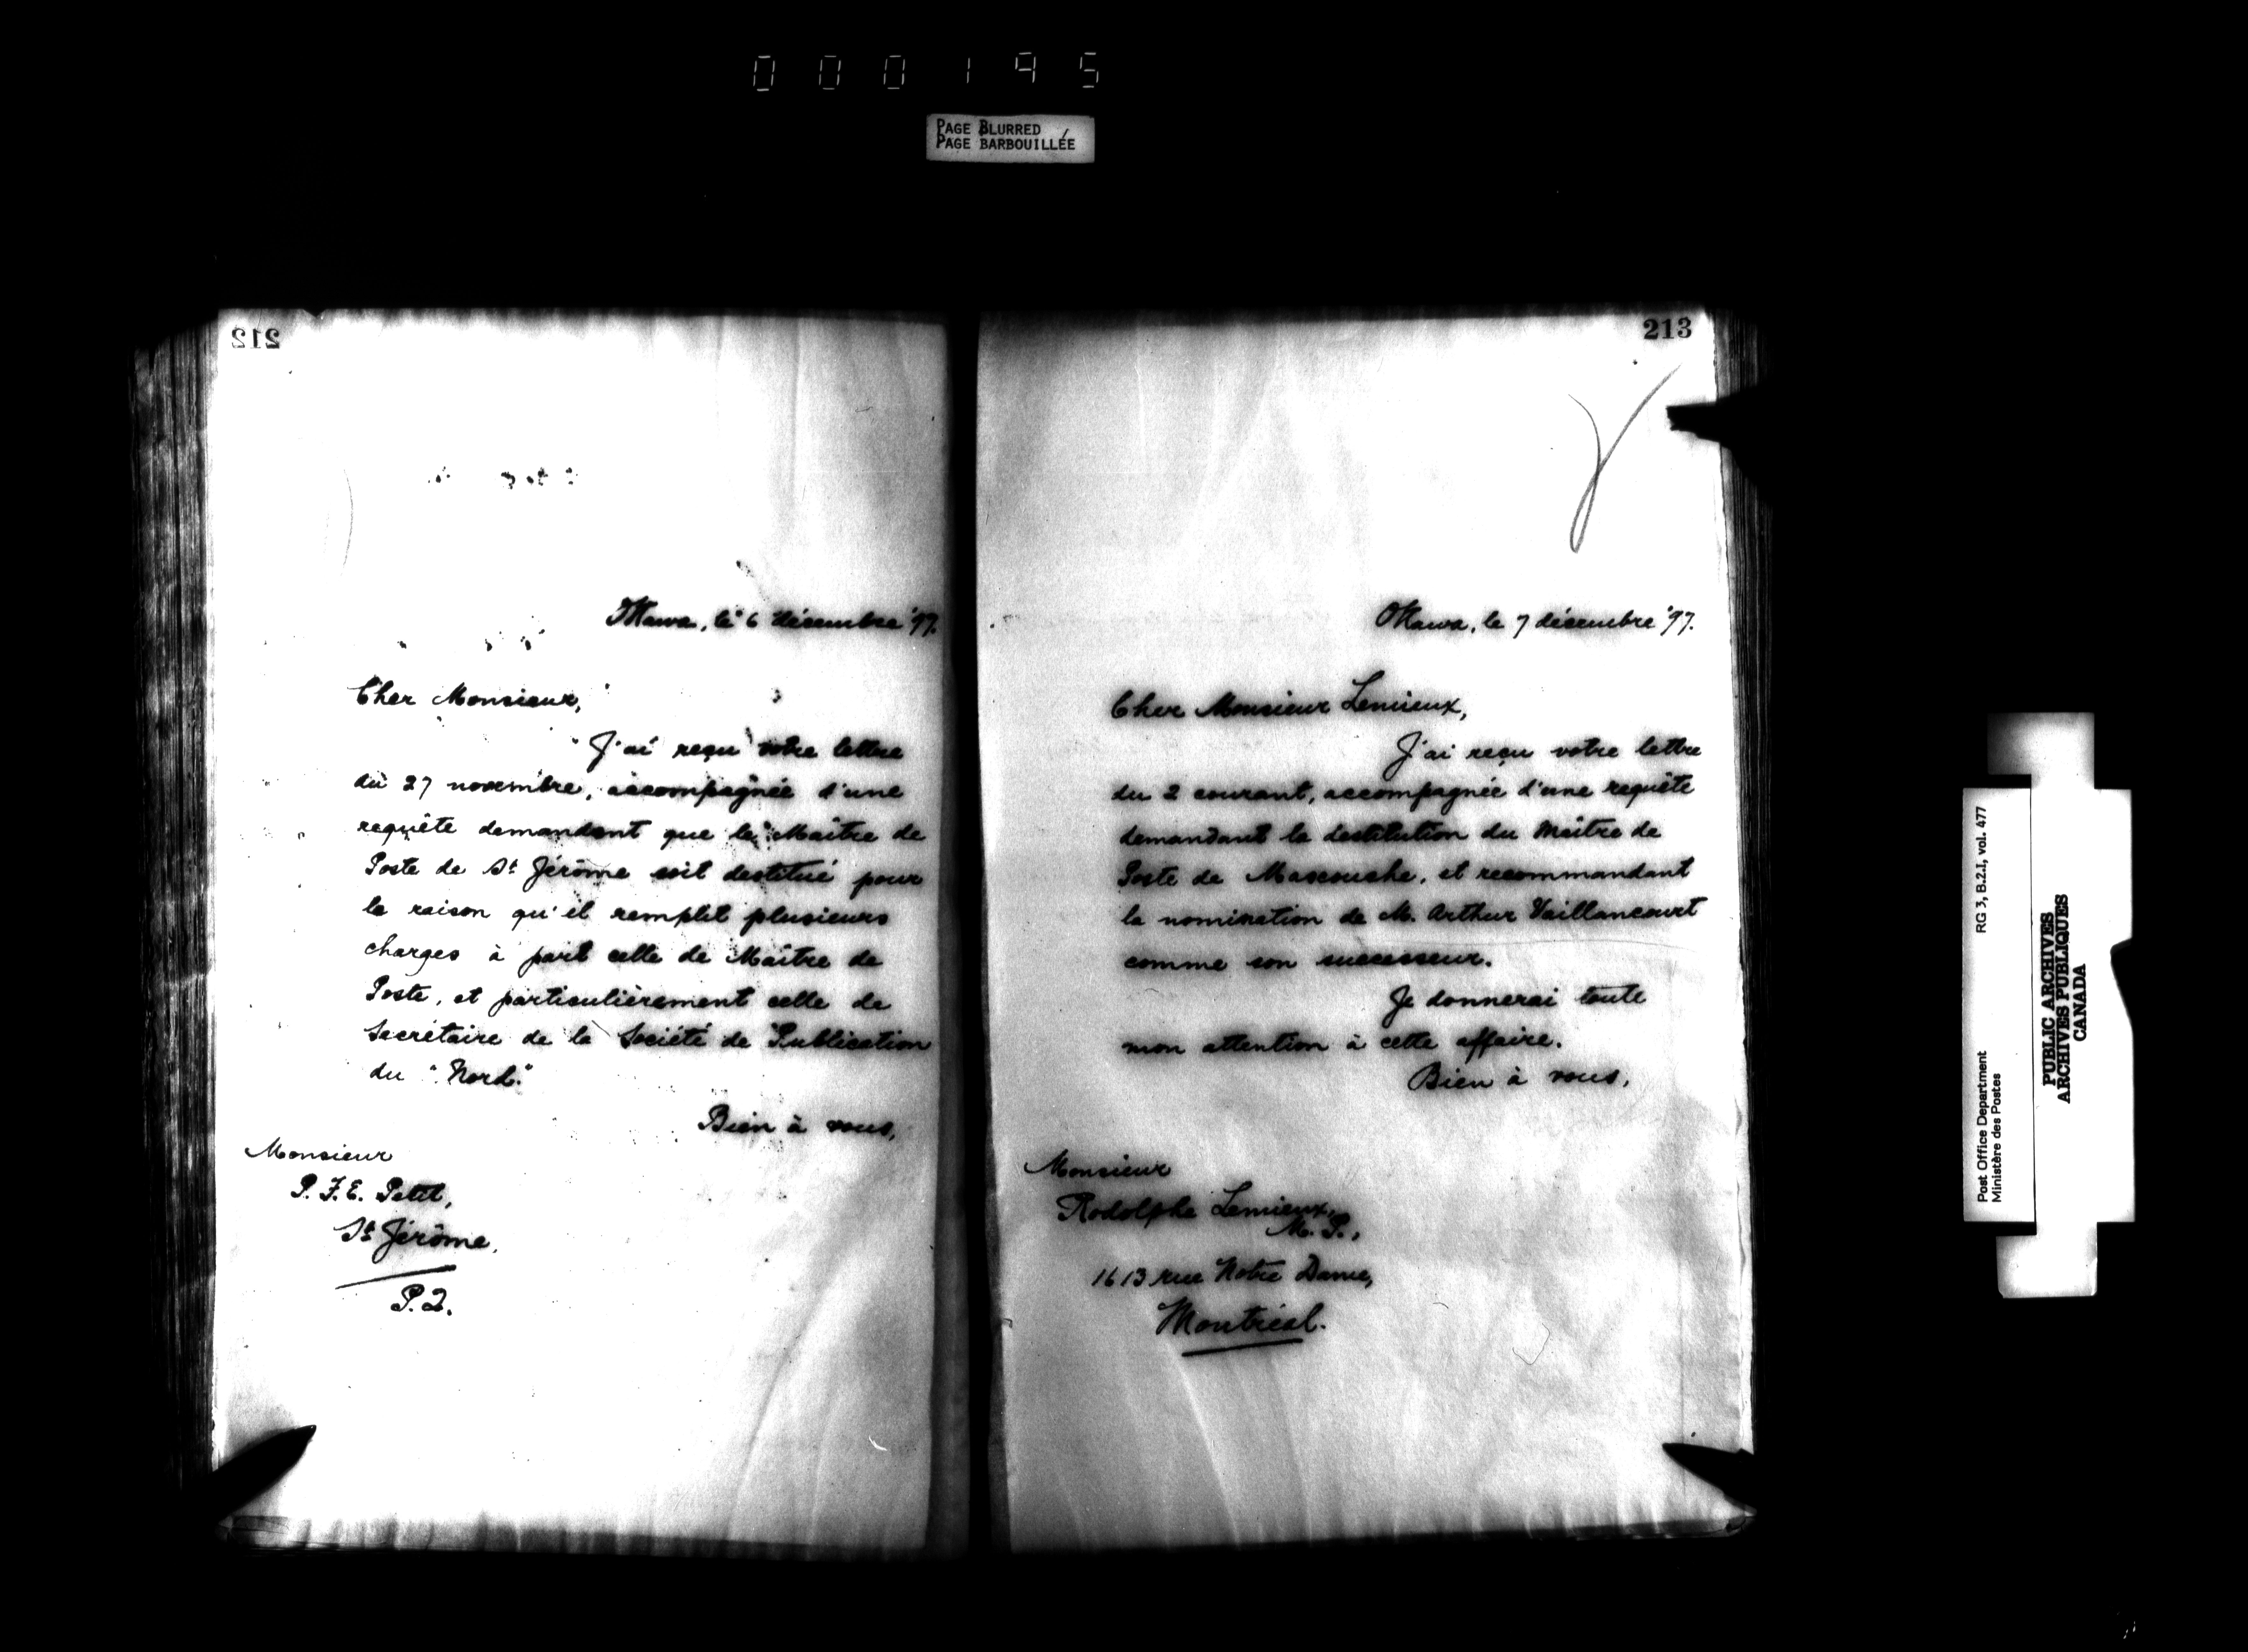 000195
PAGE BLURRED
PAGE BARBOUILLÉE
212
Ottawa, le 6 décembre '97.
Cher Monsieur,
J'ai reçu votre lettre
du 27 novembre, accompagnée d'une
requête demandant que le Maître de
Poste de St Jérôme soit destitué pour
la raison qu'il remplit plusieurs
charges à part celle de Maître de
Poste, et particulièrement celle de
Secrétaire de la Société de Publication
du "Nord."
Bien à vous,
Monsieur
P. F. E. Petit,
St Jérôme,
P.Q.
213
Ottawa, le 7 décembre '97.
Cher Monsieur Lemieux,
J'ai reçu votre lettre
du 2 courant, accompagnée d'une requête
demandant la destitution du Maître de
Poste de Mascouche, et recommandant
la nomination de M. Arthur Vaillancourt
comme son successeur.
Je donnerai toute
mon attention à cette affaire.
Bien à vous,
Monsieur
Rodolphe Lemieux,
M. P.,
1613 rue Notre Dame,
Montréal.
Post Office Department
Ministère des Postes
RG 3, B.2.I, vol. 477
PUBLIC ARCHIVES
ARCHIVES PUBLIQUES
CANADA